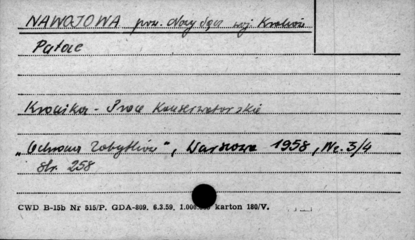 NAWOJOWA pow. Nowy Sącz woj. Kraków
Pałac
Kronika - Prace Konserwatorskie
"Ochrona Zabytków", Warszawa 1958, Nr. 3/4
str. 258
CWD B-15b Nr 515/P. GDA-809. 6.3.59. 1.000.000 karton 180/V.